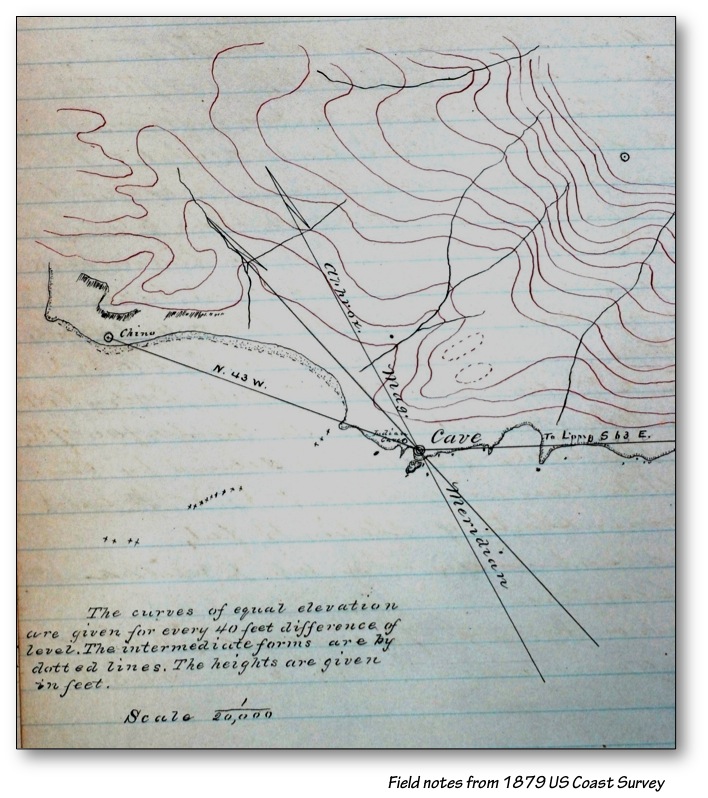 Approx.
Mag.
Meridian
Chino
N. 43 W.
Cave
To S 63 E.
The curves of equal elevation
are given for every 40 feet difference of
level. The intermediate forms are by
dotted lines. The heights are given
in feet.
Scale 1/20,000
Field notes from 1879 US Coast Survey